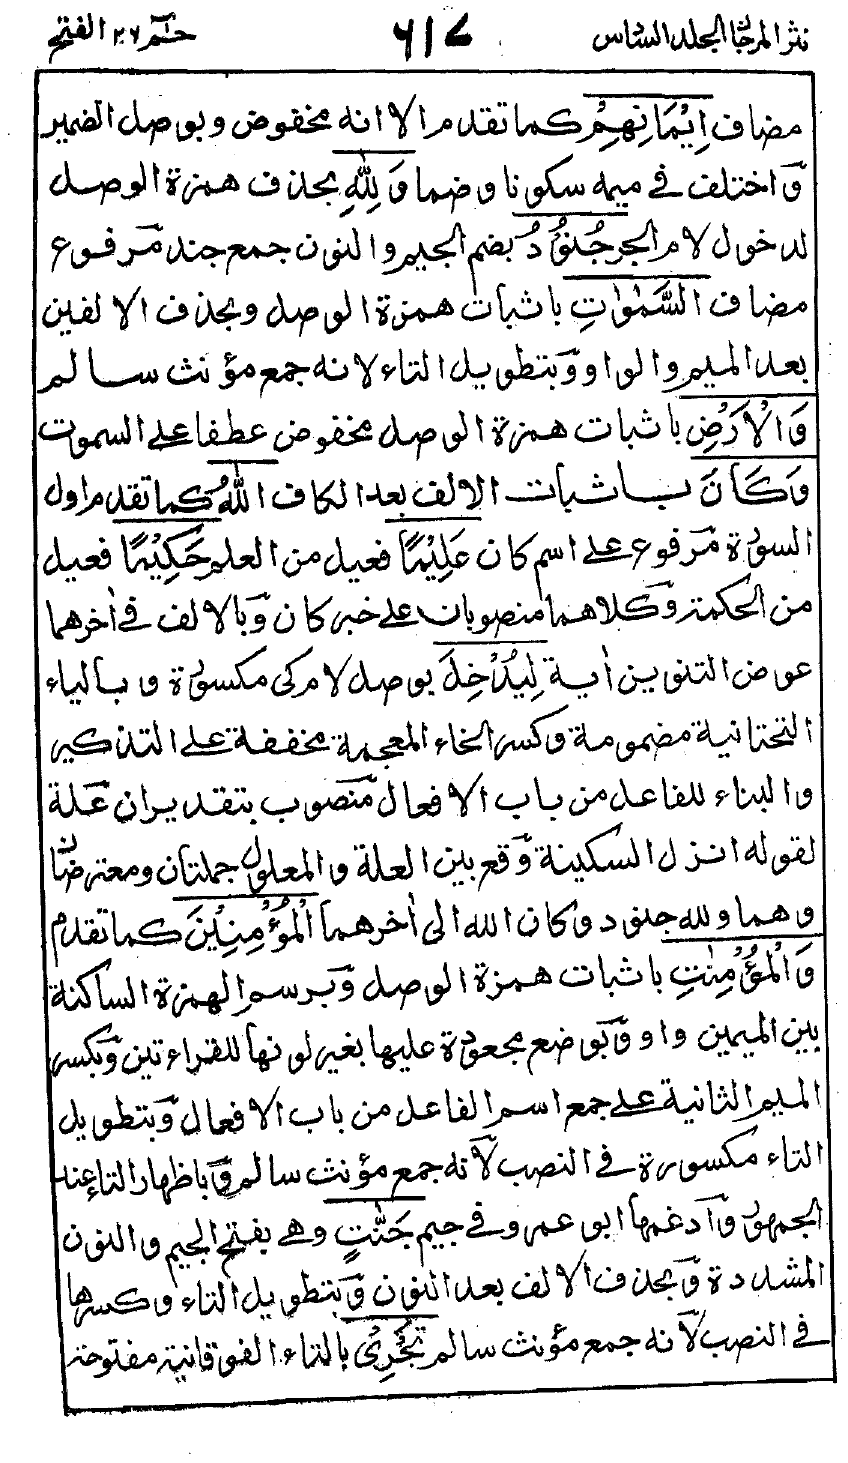 نثر المرجان المجلد السادس ٦١٧ حم ٢٦ الفتح
مضاف اِيْمَانِهِمْ كما تقدم الا انه مخفوض وبوصل الضمير
وَاختلف في ميمه سكونا وضما وَلِلّٰهِ بحذف همزة الوصل
لدخول لام الجر جُنُوْدُ بضم الجيم والنون جمع جند مرفوع
مضاف السَّمٰوٰتِ باثبات همزة الوصل وبحذف الالفين
بعد الميم والواو وبتطويل التاء لانه جمع مؤنث سالم
وَالْاَرْضِ باثبات همزة الوصل مخفوض عطفا على السموت
وَكَانَ باثبات الالف بعد الكاف اللّٰهُ كما تقدم اول
السورة مرفوع على اسم كان عَلِيْمًا فعيل من العلم حَكِيْمًا فعيل
من الحكمة وكلاهما منصوبان على خبر كان وبالالف في اٰخرهما
عوض التنوين اٰية لِيُدْخِلَ بوصل لام كي مكسورة وبالياء
التحتانية مضمومة وكسر الخاء المعجمة مخففة على التذكير
والبناء للفاعل من باب الافعال منصوب بتقدير ان علة
لقوله انزل السكينة وقع بين العلة والمعلول جملتان ومعترضتان
وهما ولله جنود وكان الله الى اٰخرهما الْمُؤْمِنِيْنَ كما تقدم
وَالْمُؤْمِنٰتِ باثبات همزة الوصل وبرسم الهمزة الساكنة
بين الميمين واو وبوضع مجعودة عليها بغير لونها للقراءتين وبكسر
الميم الثانية على جمع اسم الفاعل من باب الافعال وبتطويل
التاء مكسورة في النصب لانه جمع مؤنث سالم وباظهار التاء عند
الجمهور وادغمها ابو عمرو في جيم جَنّٰتٍ وهي بفتح الجيم والنون
المشددة وبحذف الالف بعد النون وبتطويل التاء وكسرها
في النصب لانه جمع مؤنث سالم تَجْرِيْ بالتاء الفوقانية مفتوحة